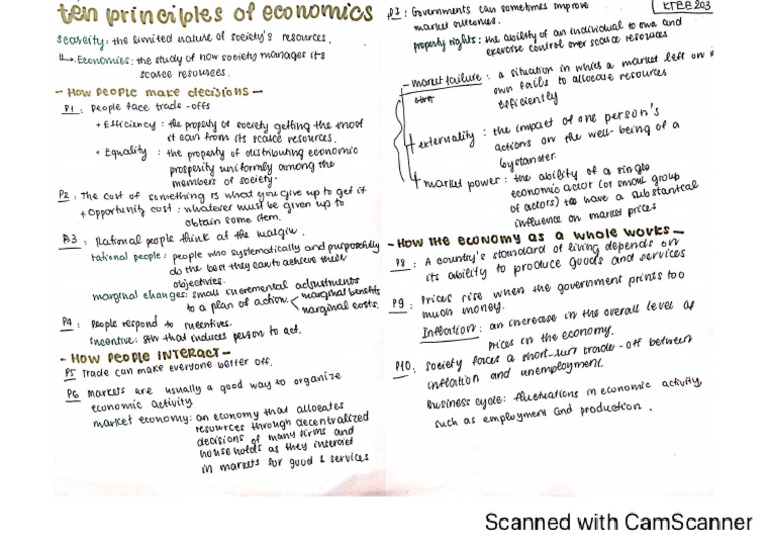 ten principles of economics
scarcity: the limited nature of society's resources.
↳ Economics: the study of how society manages its
scarce resources.
- How people make decisions -
P1: People face trade-offs
+ Efficiency: the property of society getting the most
it can from its scarce resources.
+ Equality: the property of distributing economic
prosperity uniformly among the
members of society.
P2: The cost of something is what you give up to get it
+ Opportunity cost: whatever must be given up to
obtain some item.
P3: Rational people think at the margin.
rational people: people who systematically and purposefully
do the best they can to achieve their
objectives.
marginal changes: small incremental adjustments
to a plan of action. < marginal benefits
marginal costs.
P4: People respond to incentives.
Incentive: sth that induces person to act.
- How people interact -
P5 Trade can make everyone better off.
P6 Markets are usually a good way to organize
economic activity.
market economy: an economy that allocates
resources through decentralized
decisions of many firms and
households as they interact
in markets for good & services
P7: Governments can sometimes improve
market outcomes.
KTEE 203
property rights: the ability of an individual to own and
exercise control over scarce resources
- market failure: a situation in which a market left on
own fails to allocate resources
efficiently
+ externality: the impact of one person's
actions on the well-being of a
bystander.
+ market power: the ability of a single
economic actor (or small group
of actors) to have a substantial
influence on market prices
- How the economy as a whole works -
P8: A country's standard of living depends on
its ability to produce goods and services
P9: Prices rise when the government prints too
much money.
Inflation: an increase in the overall level of
prices in the economy.
P10: Society faces a short-run trade-off between
inflation and unemployment.
Business cycle: fluctuations in economic activity,
such as employment and production.
Scanned with CamScanner